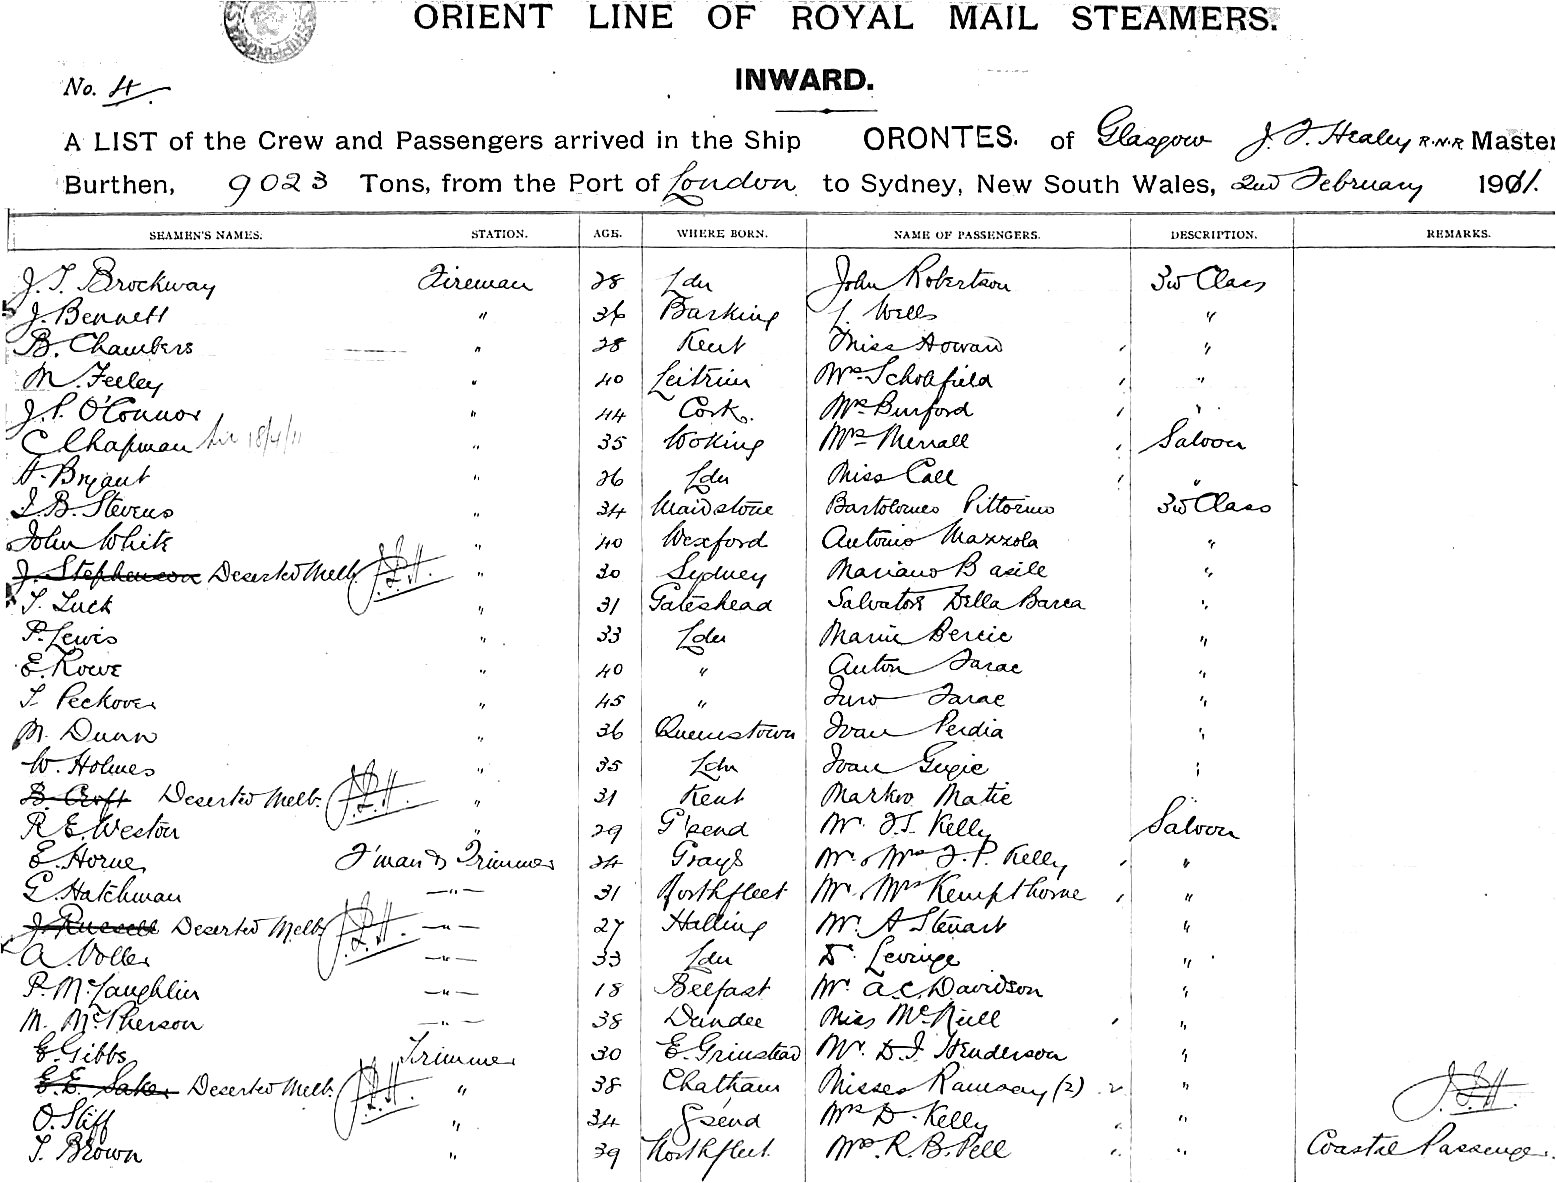 ORIENT LINE OF ROYAL MAIL STEAMERS.
INWARD.
No. 4
A LIST of the Crew and Passengers arrived in the Ship ORONTES. of Glasgow J. F. Healey R.N.R Master
Burthen, 9023 Tons, from the Port of London to Sydney, New South Wales, 2nd February 1911.
SEAMEN'S NAMES. STATION. AGE. WHERE BORN. NAME OF PASSENGERS. DESCRIPTION. REMARKS.
J. T. Brockway Fireman 28 Ldn John Robertson 3rd Class
J. Bennett " 36 Barking J. Wells "
B. Chambers " 28 Kent Miss Howard "
M. Feeley " 40 Leitrim Mrs Scholefield "
J. P. O'Connor " 44 Cork. Mrs Burford "
C Chapman 18/4/11 " 35 Woking Mrs Merrall Saloon
A. Bryant " 26 Ldn Miss Call "
J. B. Stevens " 34 Maidstone Bartolomeo Pittorino 3rd Class
John White " 40 Wexford Antonio Mazzola "
J. Stephenson Deserted Melb. J.F.H. " 30 Sydney Mariano Basile "
T. Luck " 31 Gateshead Salvatore Della Barca "
P. Lewis " 33 Ldn Marin Bercic "
E. Rowe " 40 " Anton Sarac "
T. Peckover " 45 " Juro Sarac "
M. Dunn " 36 Queenstown Ivan Perdia "
W. Holmes " 35 Ldn Ivan Gugic "
B. Croft Deserted Melb. J.F.H. " 31 Kent Markvo Matic "
R. E. Weston " 29 G'send Mr. J. T. Kelly Saloon
E. Horne F'man & Trimmer 24 Grays Mr. & Mrs J. P. Kelly "
G. Hatchman —"— 31 Northfleet Mr. Mrs Kempthorne "
J. Russell Deserted Melb J.F.H. —"— 27 Halling Mr. A Stewart "
A. Voller —"— 33 Ldn Dr. Levinge "
P. McLaughlin —"— 18 Belfast Mr. A. C. Davidson "
M. McPherson —"— 38 Dundee Miss McNeill "
E. Gibbs Trimmer 30 E. Grinstead Mr. D. J. Henderson "
E. E. Saker Deserted Melb. J.F.H. " 38 Chatham Misses Ramsay (2) " J.F.H.
O. Stiff " 34 G'send Mrs D. Kelly "
T. Brown " 39 Northfleet. Mrs. R. B. Pell " Coastal Passenger.